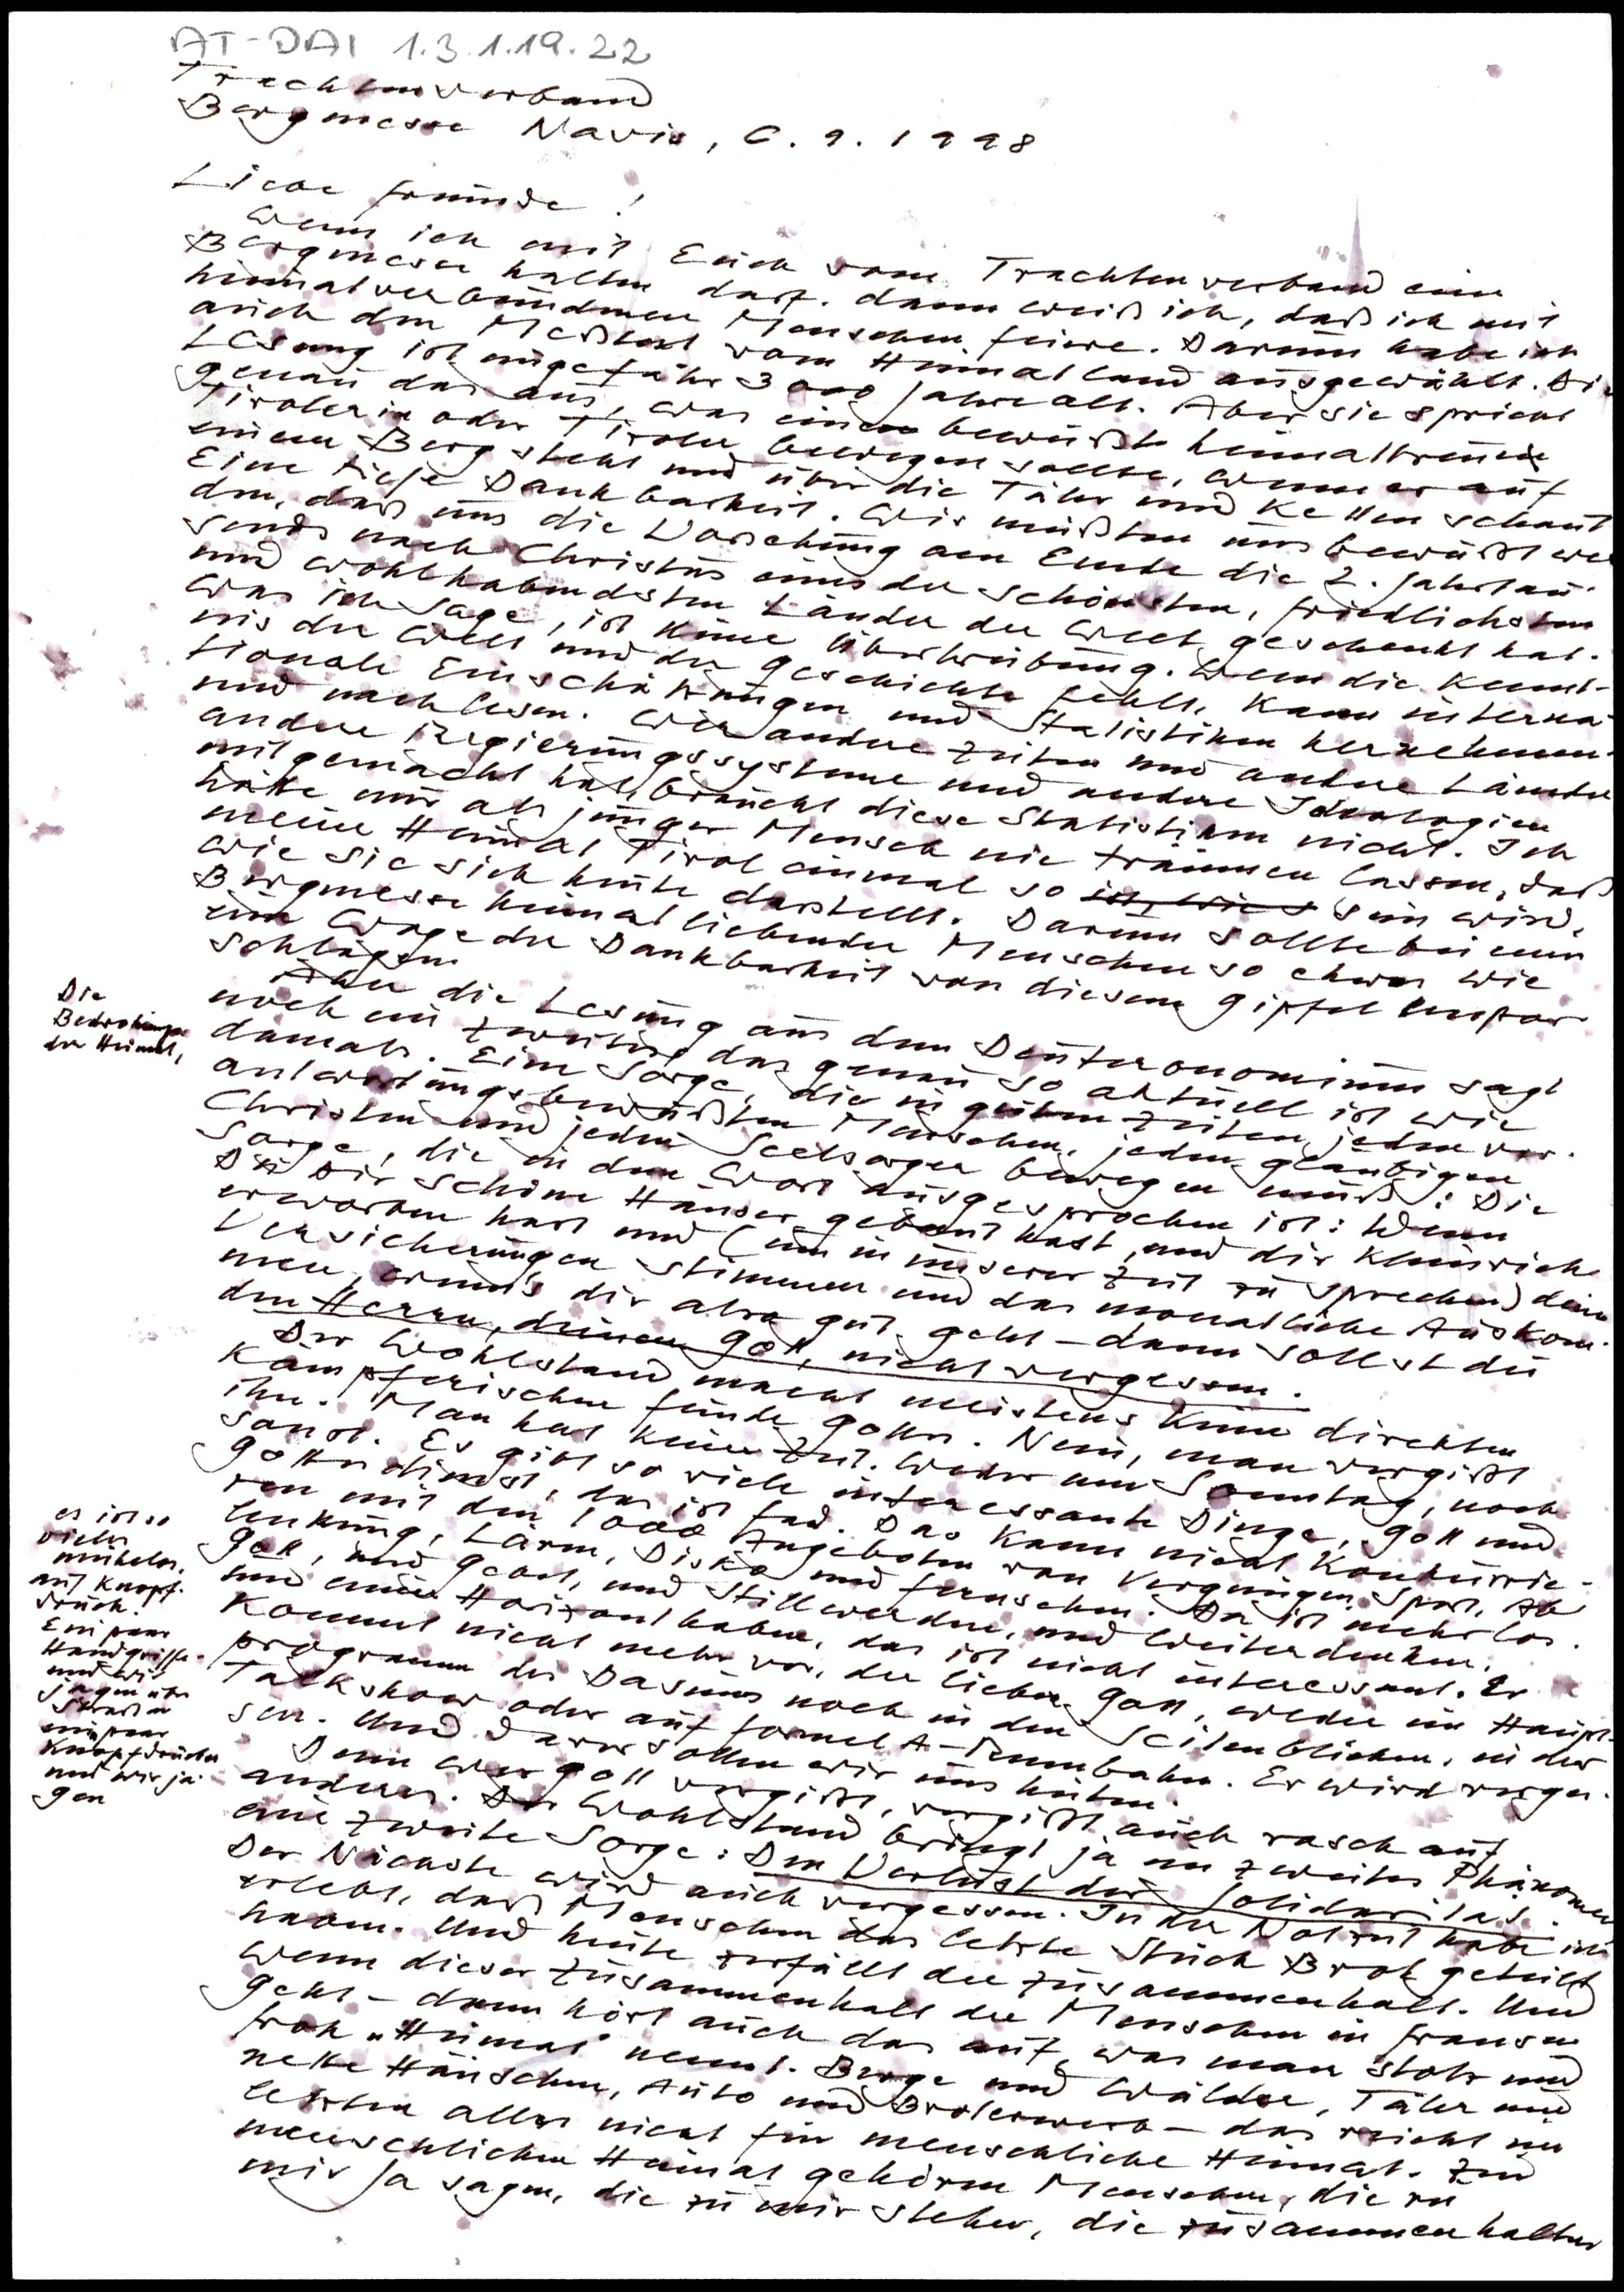 AT-DAI 1.3.1.19.22
Trachtenverband
Bergmesse Navis, 6.9.1998
Liebe Freunde!
Wenn ich mit Euch vom Trachtenverband eine
Bergmesse halten darf, dann weiß ich, daß ich mit
heimatverbundenen Menschen feiere. Darum habe ich
auch den Meßtext vom Heimatland ausgewählt. Die
Lesung ist ungefähr 3000 Jahre alt. Aber sie spricht
genau das aus, was eine bewußte heimattreue
Tirolerin oder Tiroler bewegen sollte, wenn er auf
einem Berg steht und über die Täler und Ketten schaut
Eine tiefe Dankbarkeit. Wir müßten uns bewußt wer
den, daß uns die Vorsehung am Ende die 2. Jahrtau-
sends nach Christus eines der schönsten, friedlichsten
und wohlhabendsten Länder der Welt geschenkt hat.
Was ich sage, ist keine Übertreibung. Wem die Kennt-
nis der Welt und der Geschichte fehlt, kann interna-
tionale Einschätzungen und Statistiken hernehmen
und nachlesen. Wer andere Zeiten und andere Länder
andere Regierungssysteme und andere Ideologien
mitgemacht hat, braucht diese Statistiken nicht. Ich
hätte mir als junger Mensch nie träumen lassen, daß
meine Heimat Tirol einmal so ist, wie s sein wird,
wie sie sich heute darstellt. Darum sollte bei einer
Bergmesse heimatliebender Menschen so etwas wie
eine Woge der Dankbarkeit von diesem Gipfel empor
schlagen.
Die
Bedrohung
der Heimat,
Aber die Lesung aus dem Deuteronomium sagt
noch ein zweites, das genau so aktuell ist wie
damals. Eine Sorge, die in guten Zeiten jeden ver-
antwortungsbewußten Menschen, jeden gläubigen
Christen und jeden Seelsorger bewegen muß: Die
Sorge, die in dem Wort ausgesprochen ist: Wenn
Du Dir schöne Häuser gebaut hast, und dir Kleinvieh
erworben hast und (um in unserer Zeit zu sprechen) deine
Versicherungen stimmen und das monatliche Auskom-
men, wenn's dir also gut geht – dann sollst du
den Herrn, deinen Gott, nicht vergessen.
Der Wohlstand macht meistens keine direkten
kämpferischen Feinde Gottes. Nein, man vergißt
ihn. Man hat keine Zeit. Weder am Sonntag, noch
sonst. Es gibt so viele interessante Dinge, Gott und
Gottesdienst, das ist fad. Das kann nicht konkurrie-
ren mit den 1000 Angeboten von Vergnügen, Sport, Ab
lenkung, Lärm, Disko und Fernsehen. Da ist mehr los.
Gott, und Gebet, und Stillwerden, und Weiterdenken,
und einen Horizont haben, das ist nicht interessant. Er
kommt nicht mehr vor, der liebe Gott, weder im Haupt-
programm des Daseins noch in den Seitenblicken, in der
Talkshow oder auf Formel A-Rennbahn. Er wird verges-
sen. Und davor sollen wir uns hüten.
es ist so
vieles
mühelos,
auf Knopf-
druck.
Ein paar
Handgriffe
und wir
jagen über
Straßen
ein paar
Knopfdrücke
und wir ja-
gen
Denn wer Gott vergißt, vergißt auch rasch auf
anderes. Der Wohlstand bringt ja ein zweites Phänomen
eine zweite Sorge: Den Verlust der Solidarität.
Der Nächste wird auch vergessen. In der Notzeit habe ich
erlebt, daß Menschen das letzte Stück Brot geteilt
haben. Und heute zerfällt der Zusammenhalt. Und
wenn dieser Zusammenhalt der Menschen in Fransen
geht – dann hört auch das auf, was man stolz und
froh „Heimat" nennt. Berge und Wälder, Täler und
nette Häuschen, Auto und Broterwerb – das reicht im
letzten alles nicht für menschliche Heimat. Zur
menschlichen Heimat gehören Menschen, die zu
mir Ja sagen, die zu mir stehen, die zusammenhalten